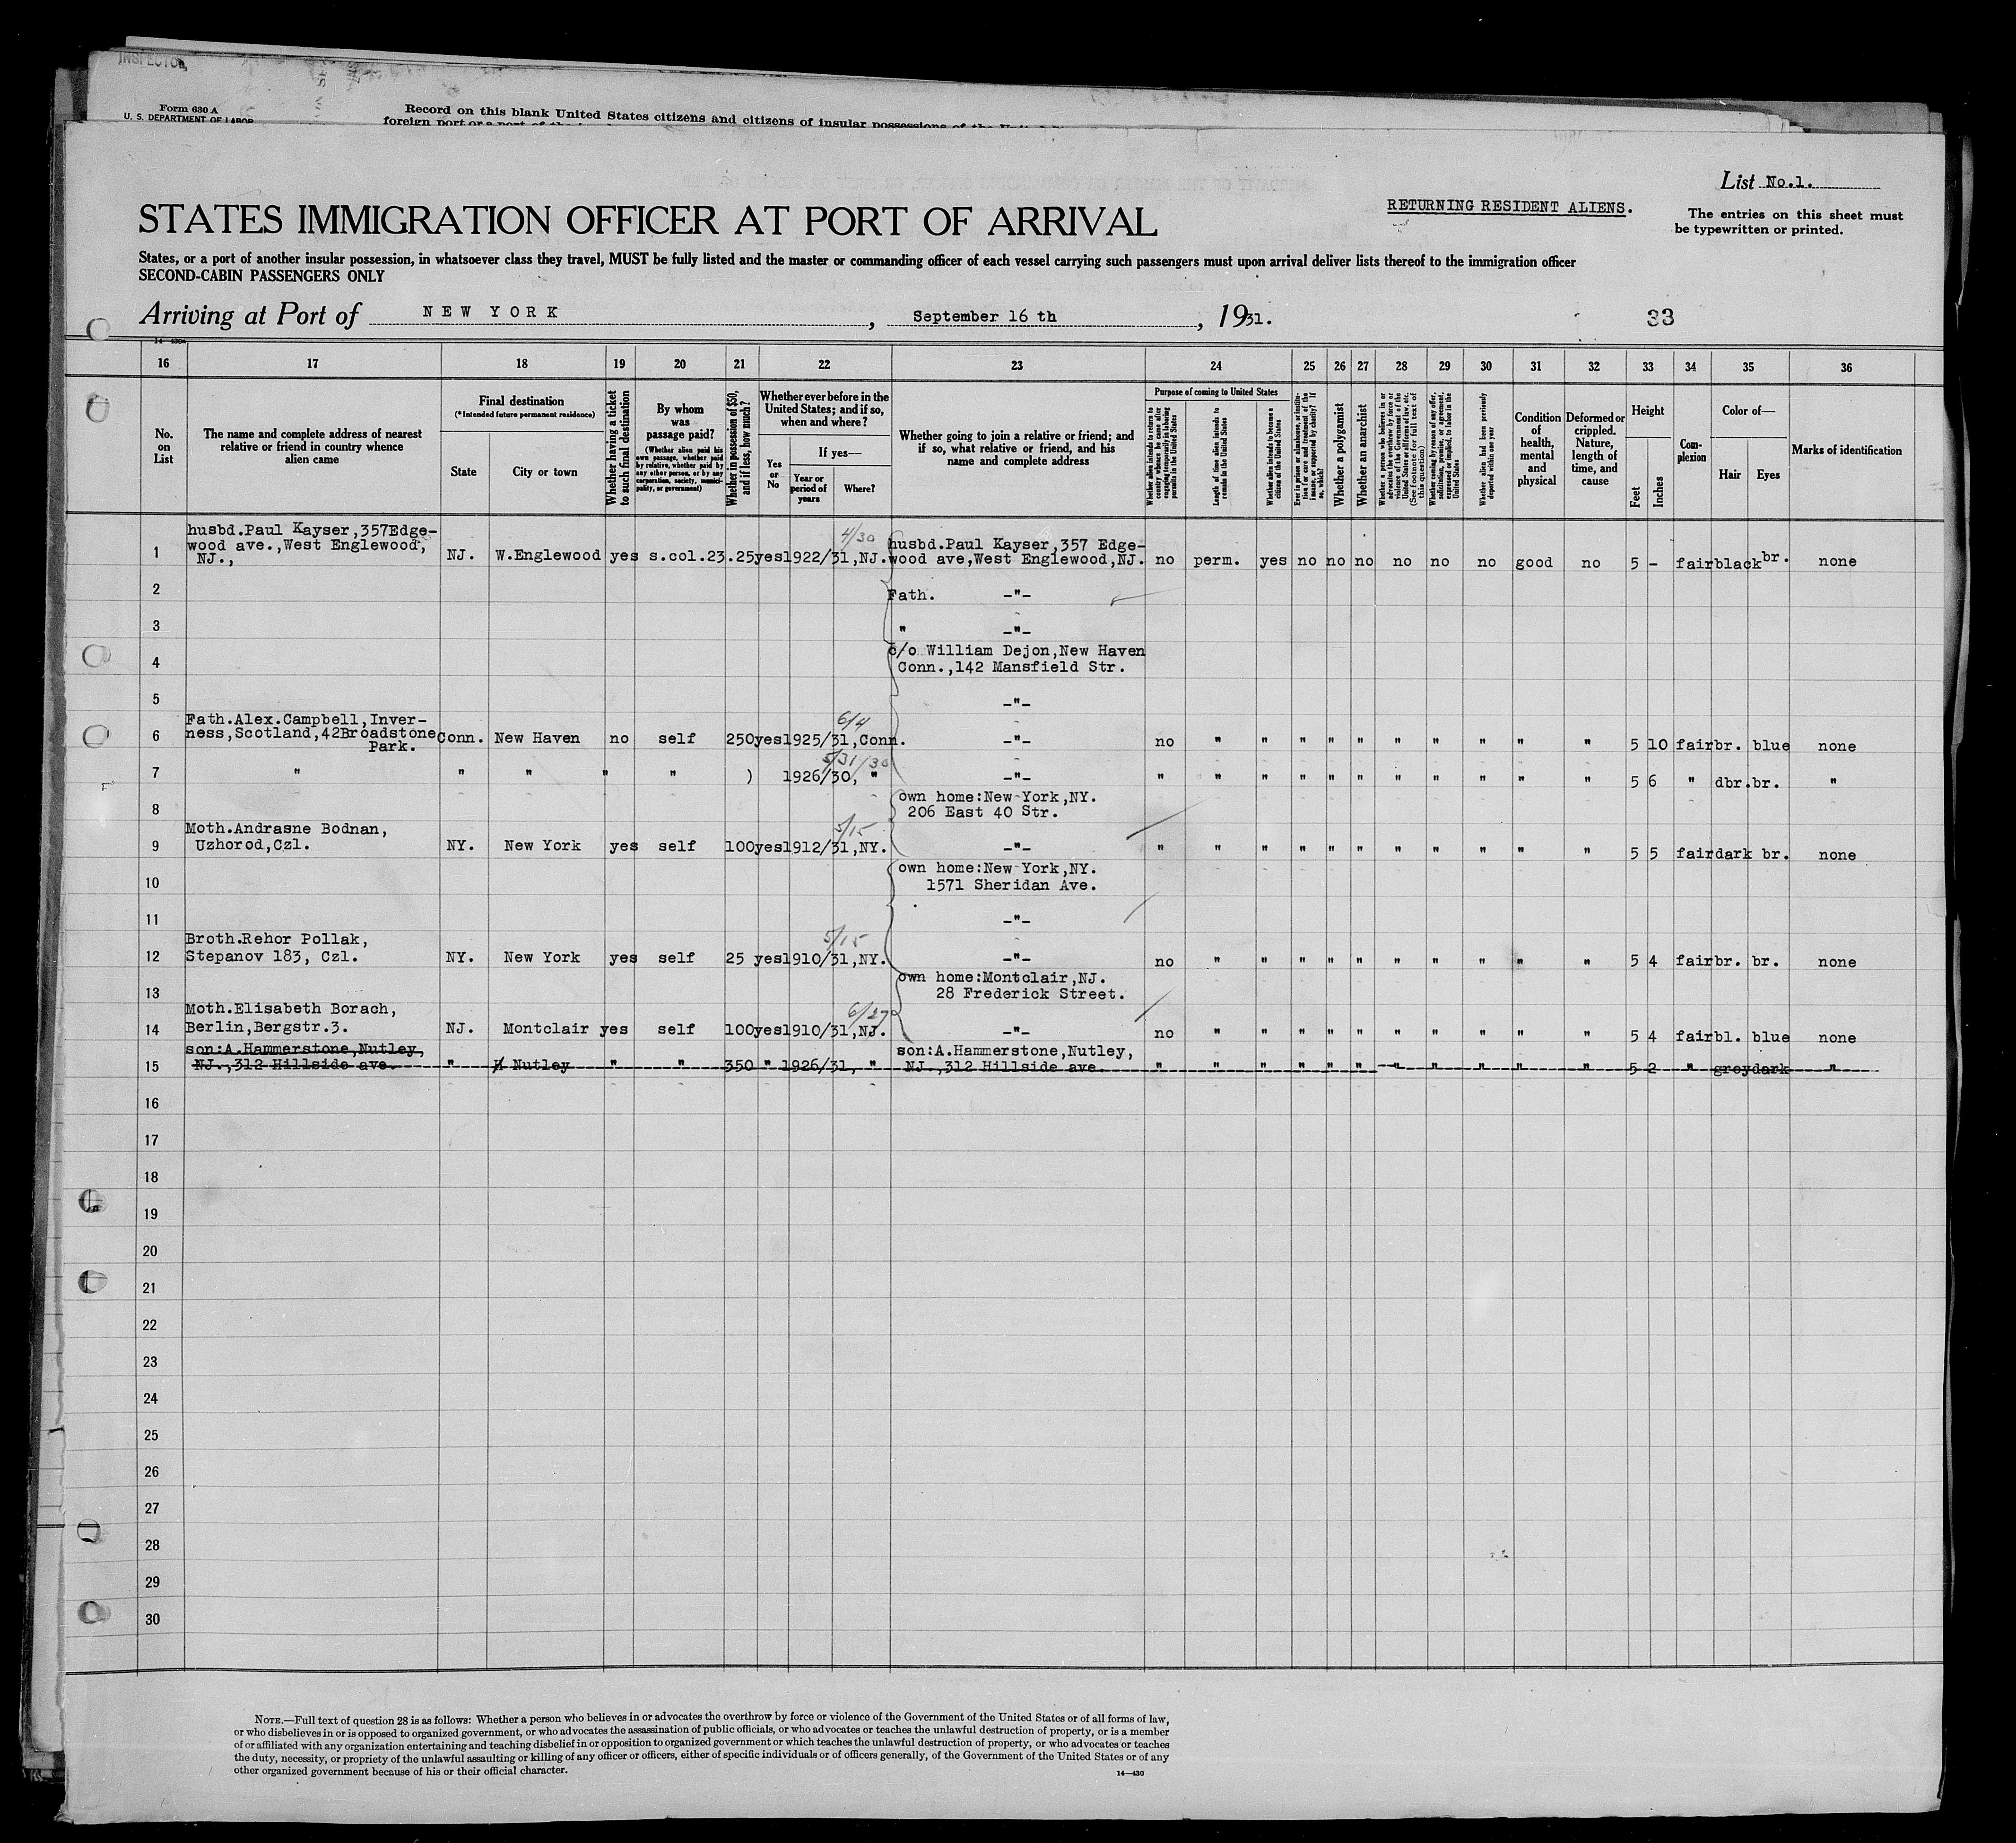 INSPECTOR
Form 630 A
U. S. DEPARTMENT OF LABOR
Record on this blank United States citizens and citizens of insular possessions of the
foreign port or a port of the
List No.1.
STATES IMMIGRATION OFFICER AT PORT OF ARRIVAL
RETURNING RESIDENT ALIENS.
The entries on this sheet must
be typewritten or printed.
States, or a port of another insular possession, in whatsoever class they travel, MUST be fully listed and the master or commanding officer of each vessel carrying such passengers must upon arrival deliver lists thereof to the immigration officer
SECOND-CABIN PASSENGERS ONLY
Arriving at Port of NEW YORK, September 16 th, 1931.
33
16 17 18 19 20 21 22 23 24 25 26 27 28 29 30 31 32 33 34 35 36
No. on List
The name and complete address of nearest relative or friend in country whence alien came
Final destination
(*Intended future permanent residence)
State
City or town
Whether having a ticket to such final destination
By whom was passage paid?
(Whether alien paid his own passage, whether paid by relative, whether paid by any other person, or by any corporation, society, municipality, or government)
Whether in possession of $50, and if less, how much?
Whether ever before in the United States; and if so, when and where?
Yes or No
If yes—
Year or period of years
Where?
Whether going to join a relative or friend; and if so, what relative or friend, and his name and complete address
Purpose of coming to United States
Whether alien intends to return to country whence he came after engaging temporarily in laboring pursuits in the United States
Length of time alien intends to remain in the United States
Whether alien intends to become a citizen of the United States
Ever in prison or almshouse, or institution for care and treatment of the insane, or supported by charity? If so, which?
Whether a polygamist
Whether an anarchist
Whether a person who believes in or advocates the overthrow by force or violence of the Government of the United States or all forms of law, etc. (See footnote for full text of this question)
Whether coming by reason of any offer, solicitation, promise, or agreement, expressed or implied, to labor in the United States
Whether alien had been previously deported within one year
Condition of health, mental and physical
Deformed or crippled. Nature, length of time, and cause
Height
Feet
Inches
Complexion
Color of—
Hair
Eyes
Marks of identification
4/30
1 husbd.Paul Kayser,357Edgewood ave.,West Englewood, NJ., NJ. W.Englewood yes s.col.23.25yes1922/31,NJ. husbd.Paul Kayser,357 Edgewood ave,West Englewood,NJ. no perm. yes no no no no no no good no 5 - fair black br. none
2 Fath. -"-
3 " -"-
4 c/o William Dejon,New Haven
Conn.,142 Mansfield Str.
5 -"-
6/4
6 Fath.Alex.Campbell,Inverness,Scotland,42Broadstone Park. Conn. New Haven no self 250yes1925/31,Conn. -"- no " " " " " " " " " " 5 10 fair br. blue none
5/31/30
7 " " " " " ) 1926/30, " -"- " " " " " " " " " " " 5 6 " dbr.br. "
8 own home:New York,NY.
206 East 40 Str.
5/15
9 Moth.Andrasne Bodnan,
Uzhorod,Czl. NY. New York yes self 100yes1912/31,NY. -"- " " " " " " " " " " " 5 5 fair dark br. none
10 own home:New York,NY.
1571 Sheridan Ave.
11 -"-
5/15
12 Broth.Rehor Pollak,
Stepanov 183, Czl. NY. New York yes self 25 yes1910/31,NY. -"- no " " " " " " " " " " 5 4 fair br. br. none
13 own home:Montclair,NJ.
28 Frederick Street.
6/27
14 Moth.Elisabeth Borach,
Berlin,Bergstr.3. NJ. Montclair yes self 100yes1910/31,NJ. -"- no " " " " " " " " " " 5 4 fair bl. blue none
15 son:A.Hammerstone,Nutley,
NJ.,312 Hillside ave. " Nutley " " 350 " 1926/31, " son:A.Hammerstone,Nutley,
NJ.,312 Hillside ave. " " " " " " " " " " " 5 2 " grey dark "
16
17
18
19
20
21
22
23
24
25
26
27
28
29
30
NOTE.—Full text of question 28 is as follows: Whether a person who believes in or advocates the overthrow by force or violence of the Government of the United States or of all forms of law,
or who disbelieves in or is opposed to organized government, or who advocates the assassination of public officials, or who advocates or teaches the unlawful destruction of property, or is a member
of or affiliated with any organization entertaining and teaching disbelief in or opposition to organized government or which teaches the unlawful destruction of property, or who advocates or teaches
the duty, necessity, or propriety of the unlawful assaulting or killing of any officer or officers, either of specific individuals or of officers generally, of the Government of the United States or of any
other organized government because of his or their official character.
14—430